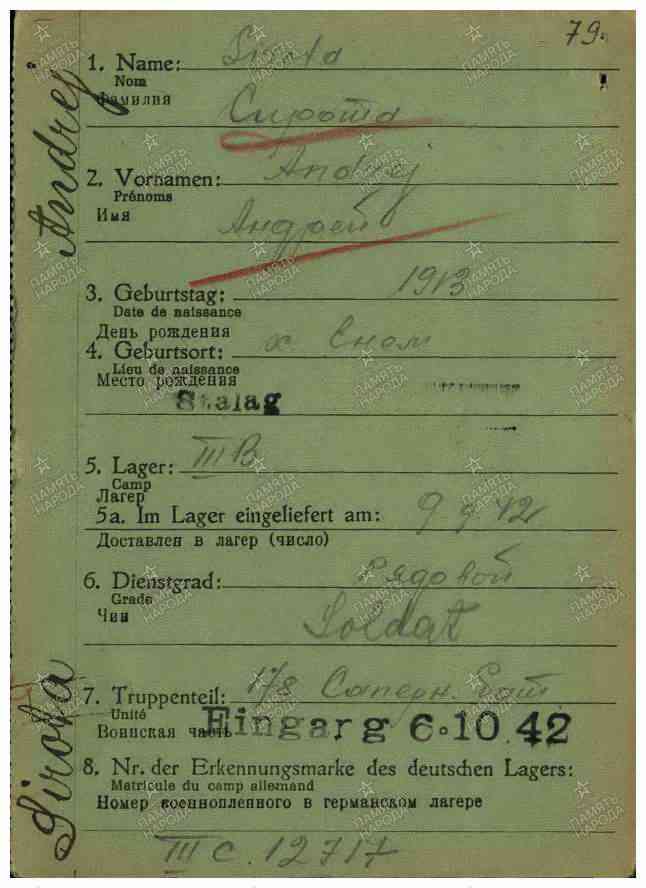 79.
1. Name: Sirota
Nom
Фамилия Сирота
2. Vornamen: Andrej
Prénoms
Имя Андрей
3. Geburtstag: 1913
Date de naissance
День рождения
4. Geburtsort:
Lieu de naissance
Место рождения
Stalag
5. Lager: III B
Camp
Лагер
5a. Im Lager eingeliefert am: 9 9. 42
Доставлен в лагер (число)
6. Dienstgrad: Рядовой
Grade
Чин Soldat
7. Truppenteil: 178 Саперн. бат
Unité
Воинская часть
Eingarg 6.10.42
8. Nr. der Erkennungsmarke des deutschen Lagers:
Matricule du camp allemand
Номер военнопленного в германском лагере
III C. 12717
Sirota Andrej
ПАМЯТЬ НАРОДА